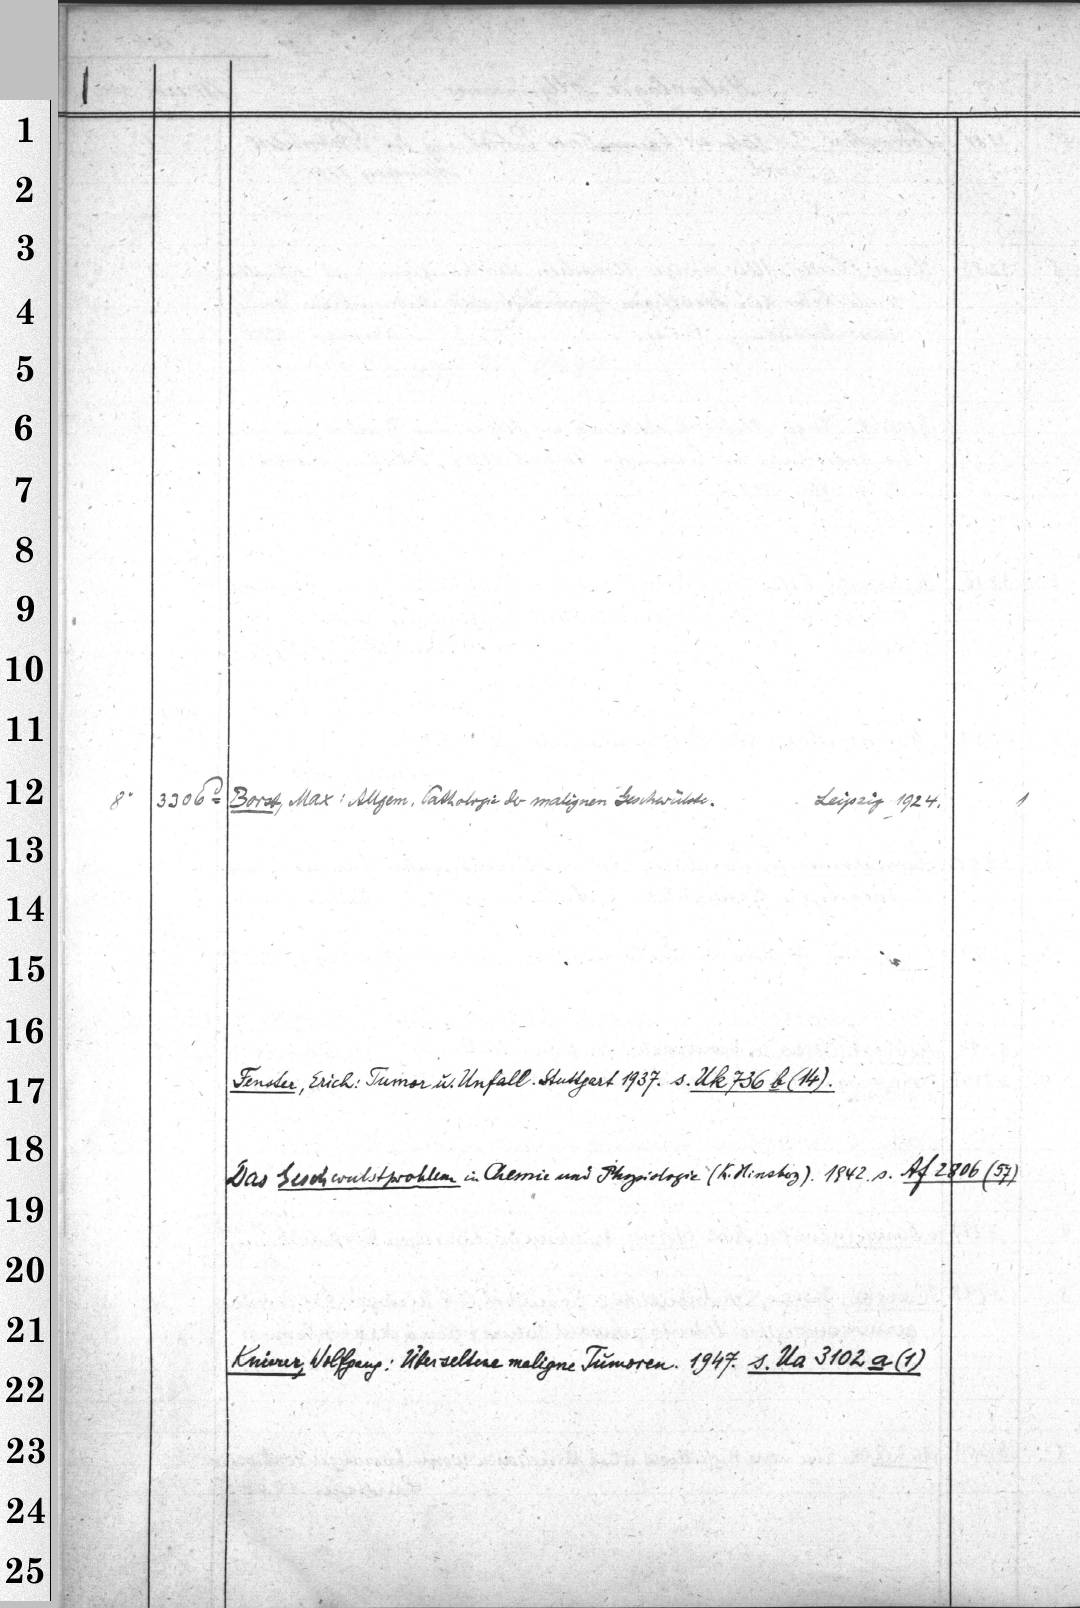 1
1
2
3
4
5
6
7
8
9
10
11
12 8° 3306 a Borst, Max: Allgem. Pathologie der malignen Geschwülste. Leipzig 1924. 1
13
14
15
16
17 Fenster, Erich: Tumor u. Unfall. Stuttgart 1937. s. Uk 736 b (14).
18
Das Geschwulstproblem in Chemie und Physiologie (K. Hinsberg). 1942. s. Af 2806 (57)
19
20
21
Knierer, Wolfgang: Über seltene maligne Tumoren. 1947. s. Ua 3102 a (1)
22
23
24
25